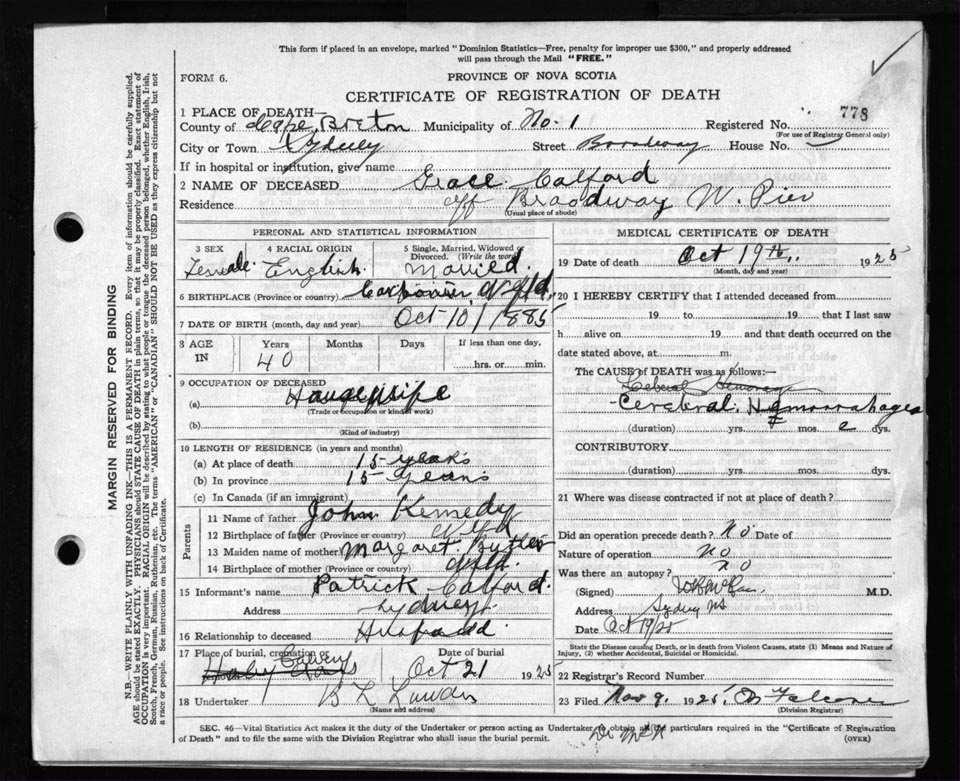 This form if placed in an envelope, marked "Dominion Statistics—Free, penalty for improper use $300," and properly addressed
will pass through the Mail "FREE."
FORM 6.
PROVINCE OF NOVA SCOTIA
CERTIFICATE OF REGISTRATION OF DEATH
1 PLACE OF DEATH—
County of Cape Breton Municipality of No. 1 Registered No. 778
(For use of Registry General only)
City or Town Sydney Street Broadway House No.
If in hospital or institution, give name
2 NAME OF DECEASED Grace Calford
Residence off Broadway W. Pier
(Usual place of abode)
PERSONAL AND STATISTICAL INFORMATION
3 SEX 4 RACIAL ORIGIN 5 Single, Married, Widowed or
Divorced. (Write the word)
Female English Married.
6 BIRTHPLACE (Province or country) Nfld.
7 DATE OF BIRTH (month, day and year) Oct 10/1885
8 AGE IN Years Months Days If less than one day,
40 hrs. or min.
9 OCCUPATION OF DECEASED
(a) Housewife
(Trade or occupation or kind of work)
(b)
(Kind of industry)
10 LENGTH OF RESIDENCE (in years and months)
(a) At place of death 15 years
(b) In province 15 years
(c) In Canada (if an immigrant)
Parents
11 Name of father John Kennedy
12 Birthplace of father (Province or country) Nfld
13 Maiden name of mother Margaret Butler
14 Birthplace of mother (Province or country) Nfld.
15 Informant's name Patrick Calford.
Address Sydney
16 Relationship to deceased Husband
17 Place of burial, cremation or Date of burial
Calvary Holy Cross Oct 21 1925
18 Undertaker B L
(Name and address)
MEDICAL CERTIFICATE OF DEATH
19 Date of death Oct 19th, 1925
(Month, day and year)
20 I HEREBY CERTIFY that I attended deceased from
19 to 19 that I last saw
h alive on 19 and that death occurred on the
date stated above, at m
The CAUSE OF DEATH was as follows:—
Cerebral Hemorrhages
(duration) yrs. mos. 2 dys.
CONTRIBUTORY.
(duration) yrs. mos. dys.
21 Where was disease contracted if not at place of death?
Did an operation precede death? No Date of
Nature of operation No
Was there an autopsy? No
(Signed) M.D.
Address Sydney NS
Date Oct 19/25
State the Disease causing Death, or in death from Violent Causes, state (1) Means and Nature of
Injury, (2) whether Accidental, Suicidal or Homicidal.
22 Registrar's Record Number
23 Filed Nov 9. 1925
(Division Registrar)
SEC. 46—Vital Statistics Act makes it the duty of the Undertaker or person acting as Undertaker to obtain all the particulars required in the "Certificate of Registration
of Death" and to file the same with the Division Registrar who shall issue the burial permit.
(OVER)
MARGIN RESERVED FOR BINDING
N.B.—WRITE PLAINLY WITH UNFADING INK—THIS IS A PERMANENT RECORD. Every item of information should be carefully supplied.
AGE should be stated EXACTLY. PHYSICIANS should STATE CAUSE OF DEATH in plain terms, so that it may be properly classified. Exact statement of
OCCUPATION is very important. RACIAL ORIGIN will be described by stating to what people or tongue the deceased person belonged, whether English, Irish,
Scotch, French, German, Russian, Ruthenian, etc. The terms "AMERICAN" or "CANADIAN" SHOULD NOT BE USED as they express citizenship but not
a race or people. See instructions on back of Certificate.